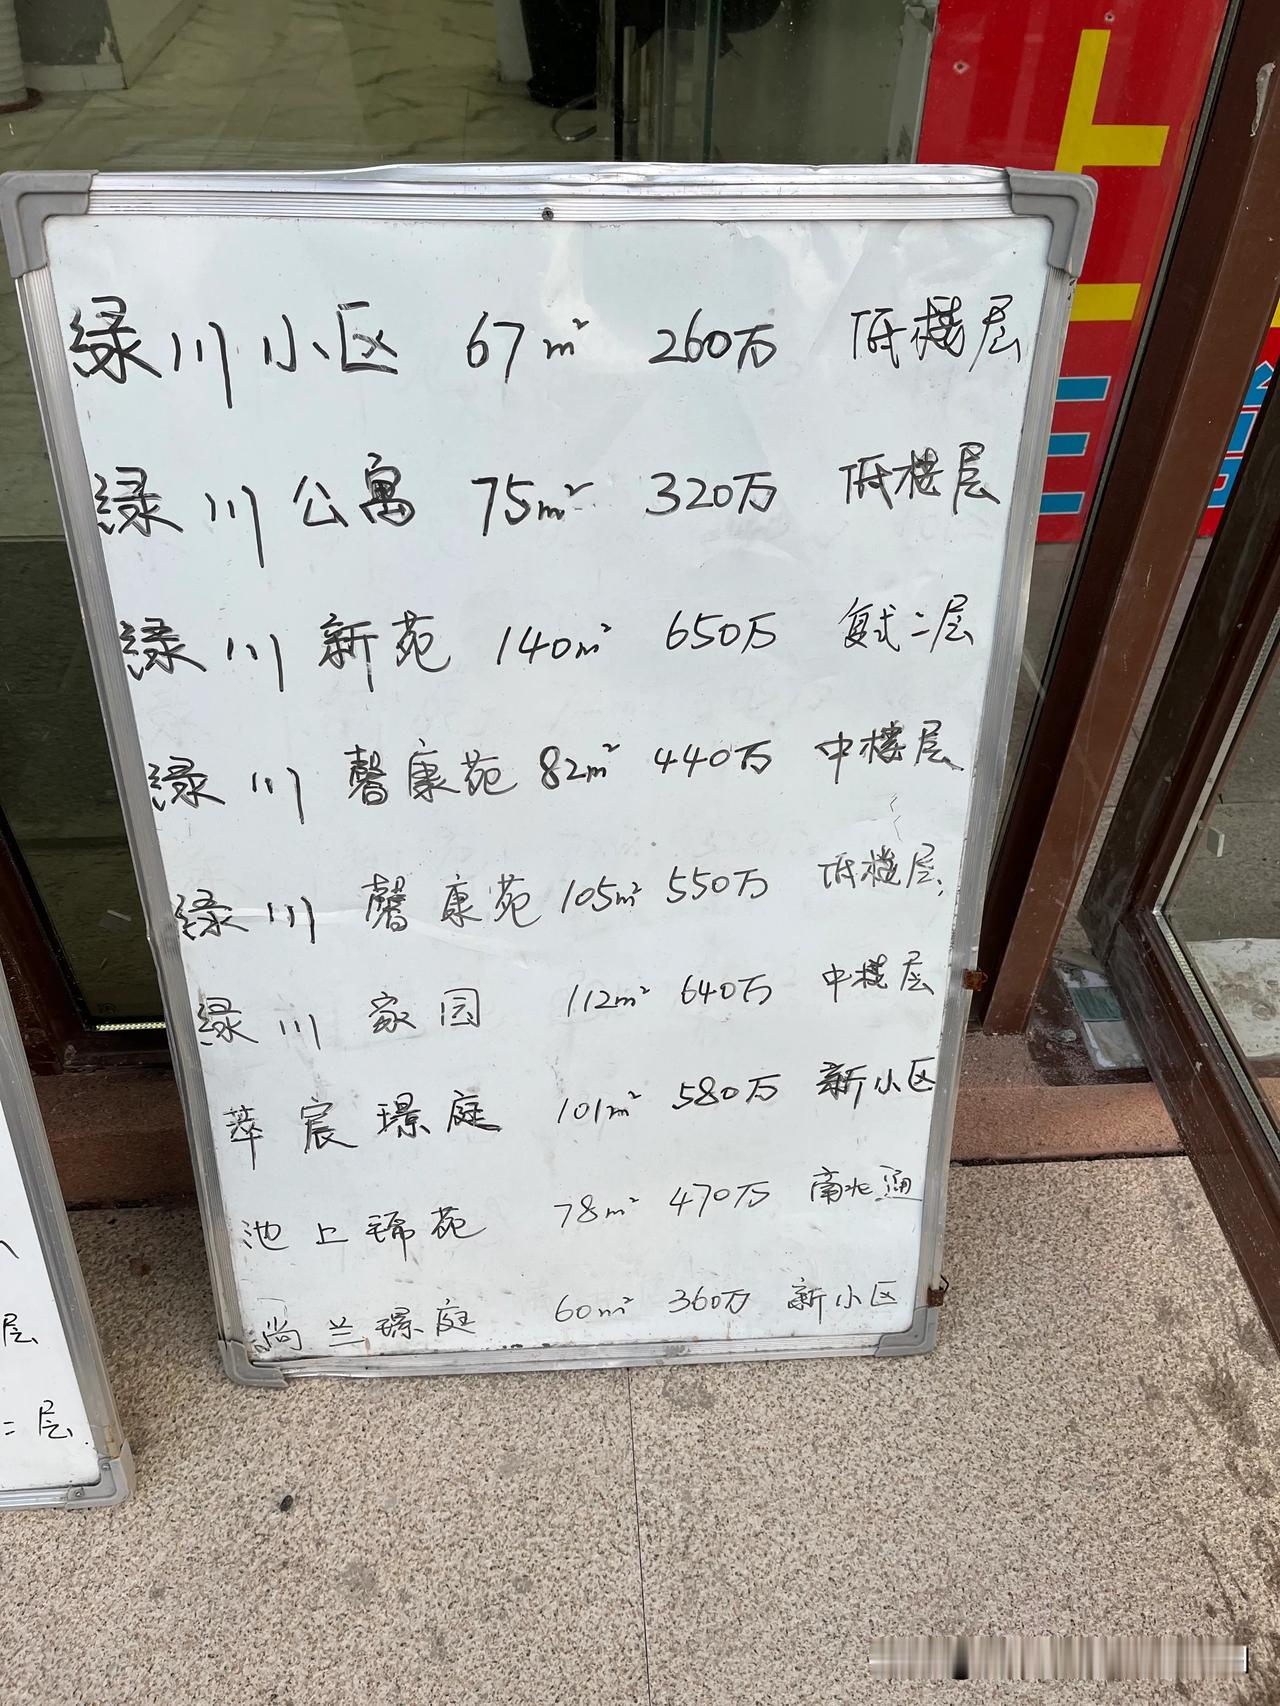 绿川小区 67m² 260万 低楼层
绿川公寓 75m² 320万 低楼层
绿川新苑 140m² 650万 复式二层
绿川馨康苑 82m² 440万 中楼层
绿川馨康苑 105m² 550万 低楼层
绿川家园 112m² 640万 中楼层
萃宸璟庭 101m² 580万 新小区
池上锦苑 78m² 470万 南北通
尚兰璟庭 60m² 360万 新小区
层
二层